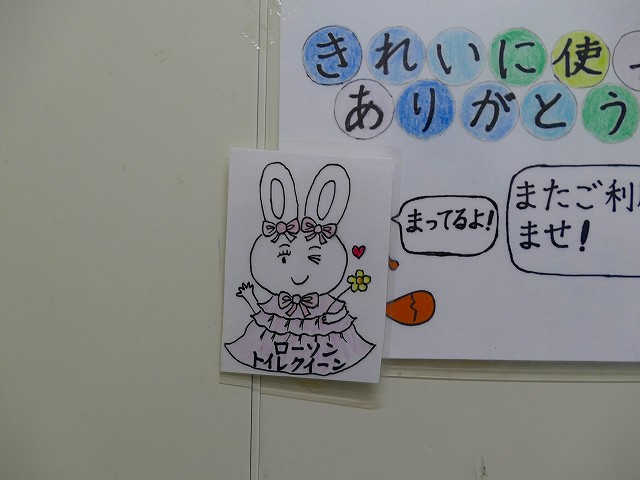 きれいに使っ
ありがとう
まってるよ!
またご利用
ませ!
ローソン
トイレクイーン